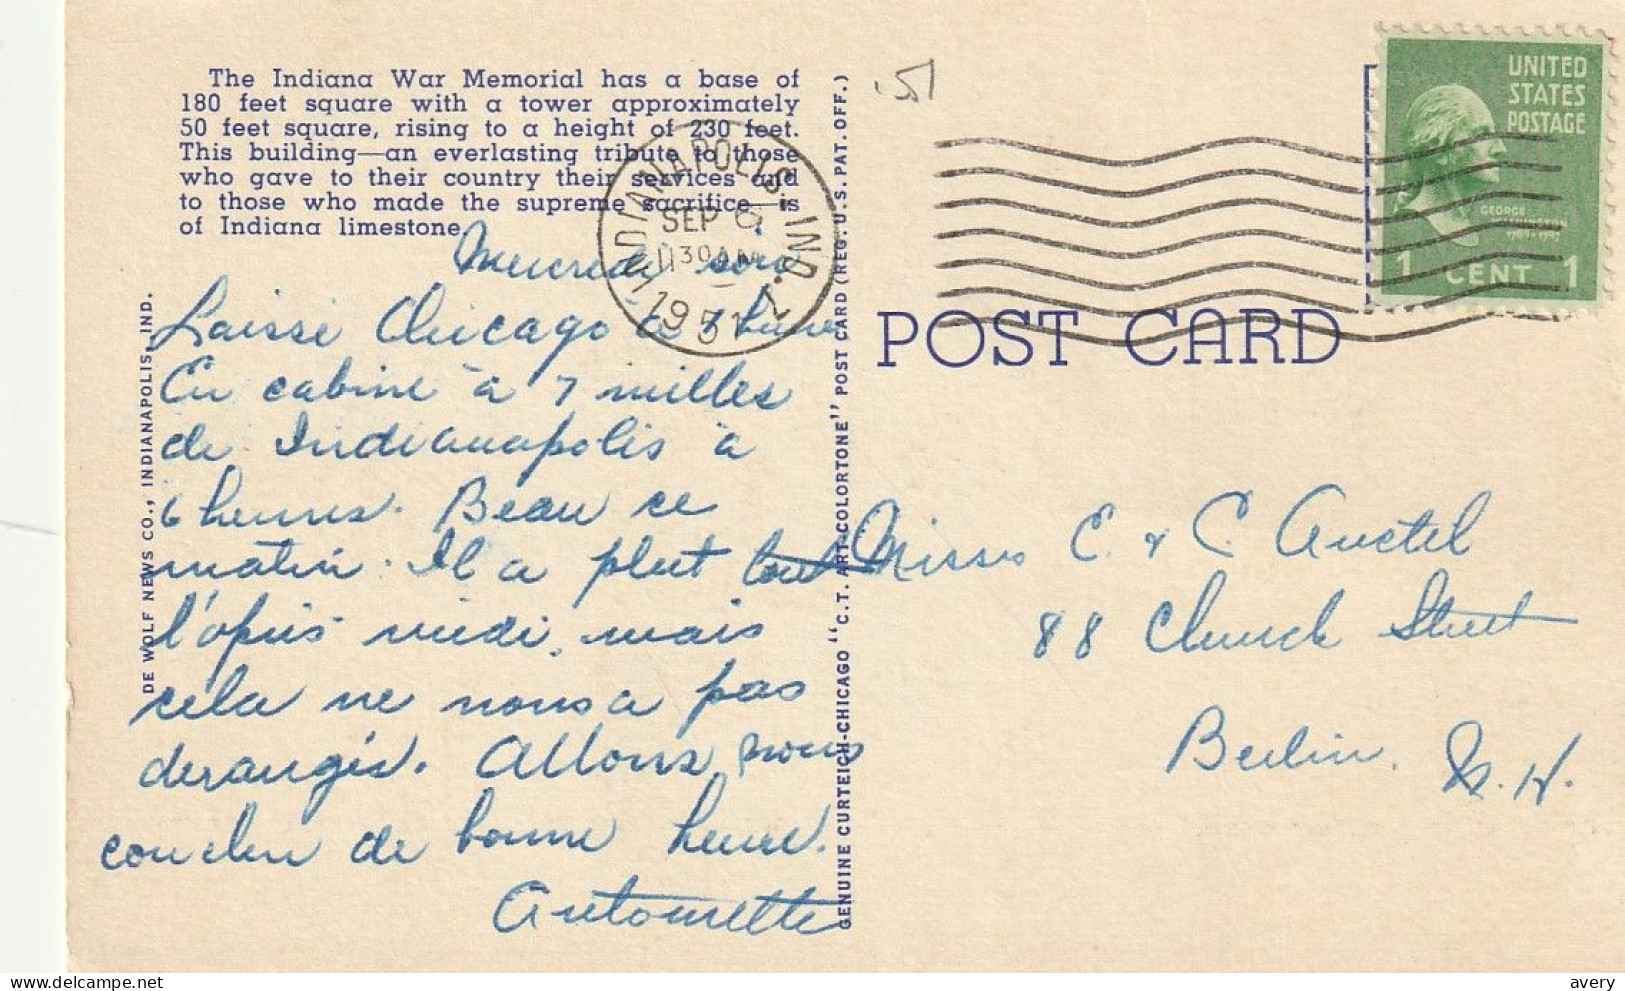 The Indiana War Memorial has a base of
180 feet square with a tower approximately
50 feet square, rising to a height of 230 feet.
This building—an everlasting tribute to those
who gave to their country their services and
to those who made the supreme sacrifice—is
of Indiana limestone.
Mercredi soir
Laissé Chicago à 7 heures
En cabine à 7 milles
de Indianapolis à
6 heures. Beau ce
matin. Il a plut tout
l'après midi, mais
cela ne nous a pas
derangés. Allons nous
coucher de bonne heure.
Antoinette
DE WOLF NEWS CO., INDIANAPOLIS IND.
GENUINE CURTEICH-CHICAGO "C.T. ART-COLORTONE" POST CARD (REG. U.S. PAT. OFF.)
'51
INDIANAPOLIS, IND.
SEP 6
11 30 AM
1951
UNITED
STATES
POSTAGE
GEORGE
WASHINGTON
1 CENT 1
POST CARD
Misses E. & C. Auctel
88 Church Street
Berlin. N. H.
avery